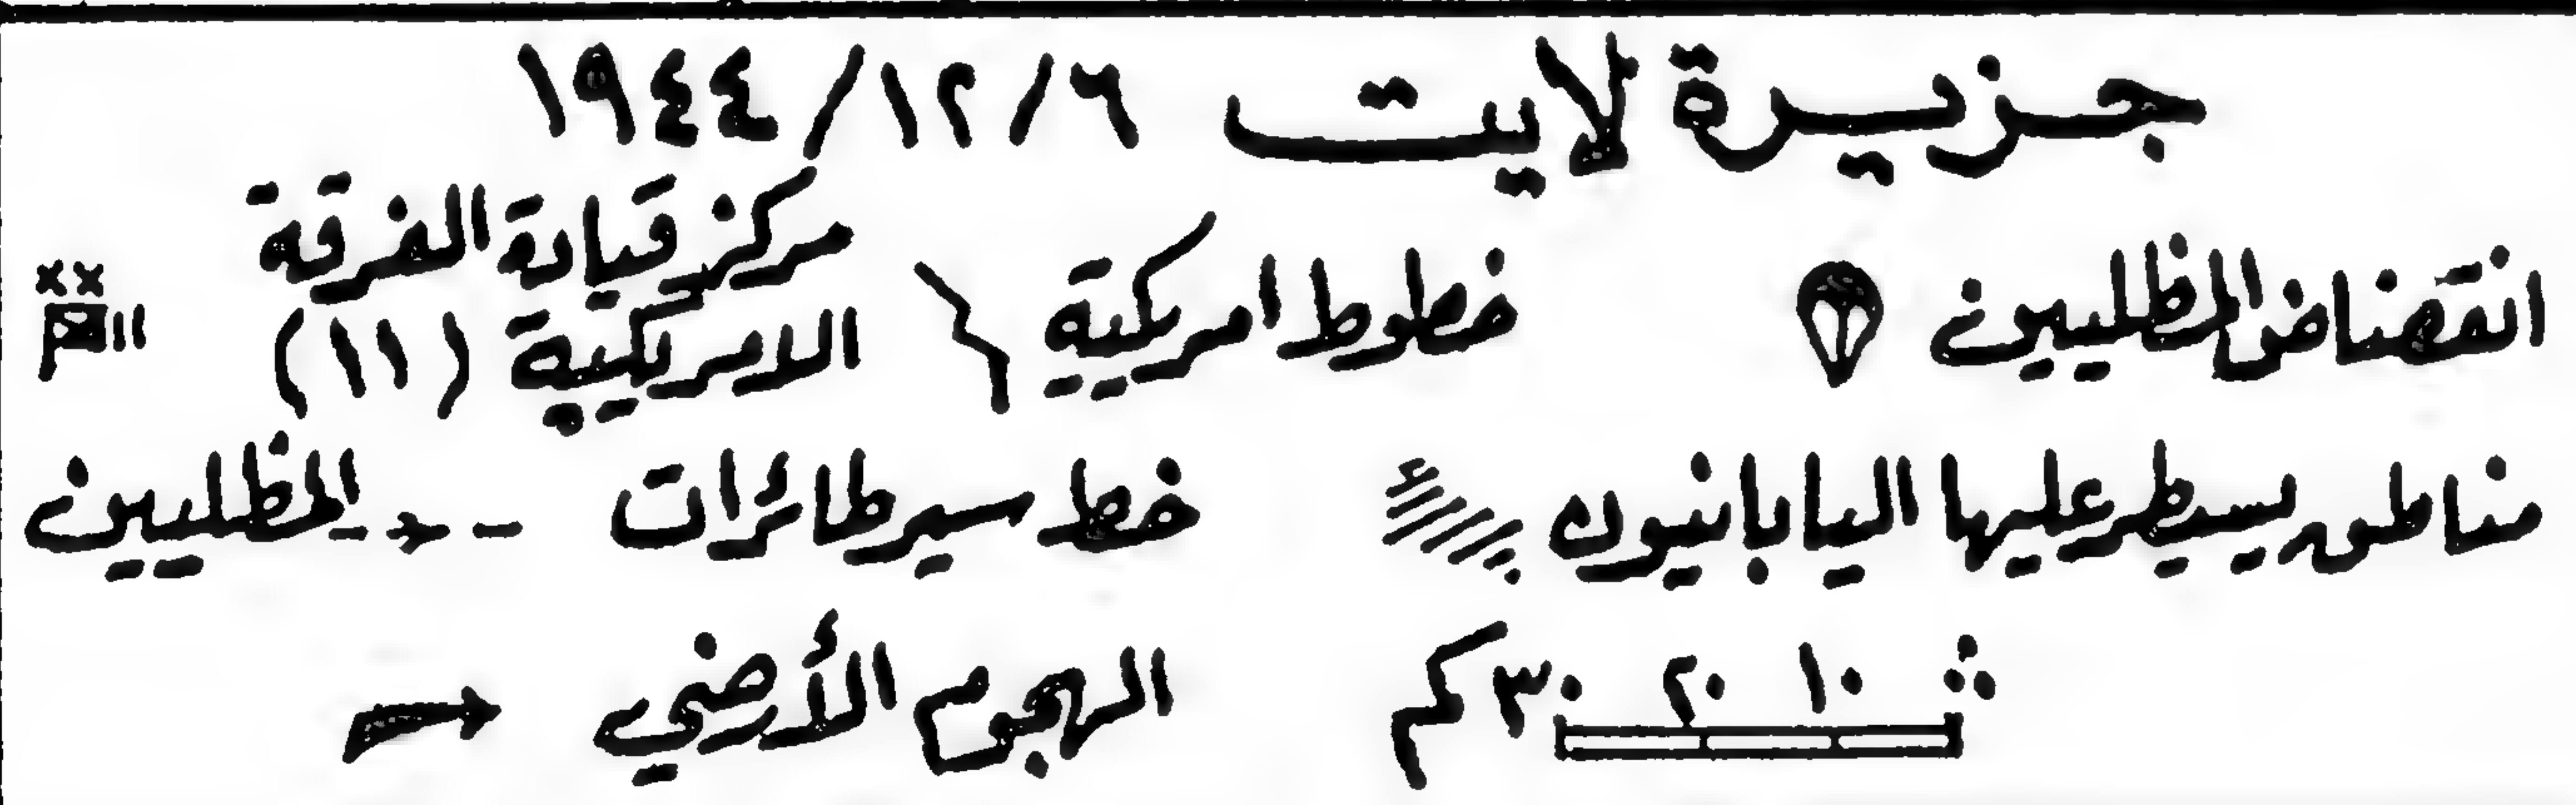 جزيرة لايت ٦/١٢/١٩٤٤
انقضاض المظليين
خطوط امريكية
مركز قيادة الفرقة
الامريكية (١١)
مناطق يسيطر عليها اليابانيون
خط سير طائرات المظليين
١٠ ٢٠ ٣٠ كم
الهجوم الأرضي